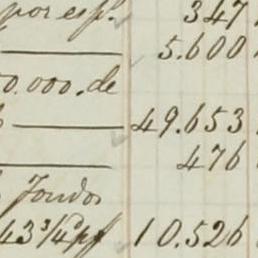 por esp.ª 347
5.600
0.000. de
49.653
476
Fondos
43 3/4 p% 10.526